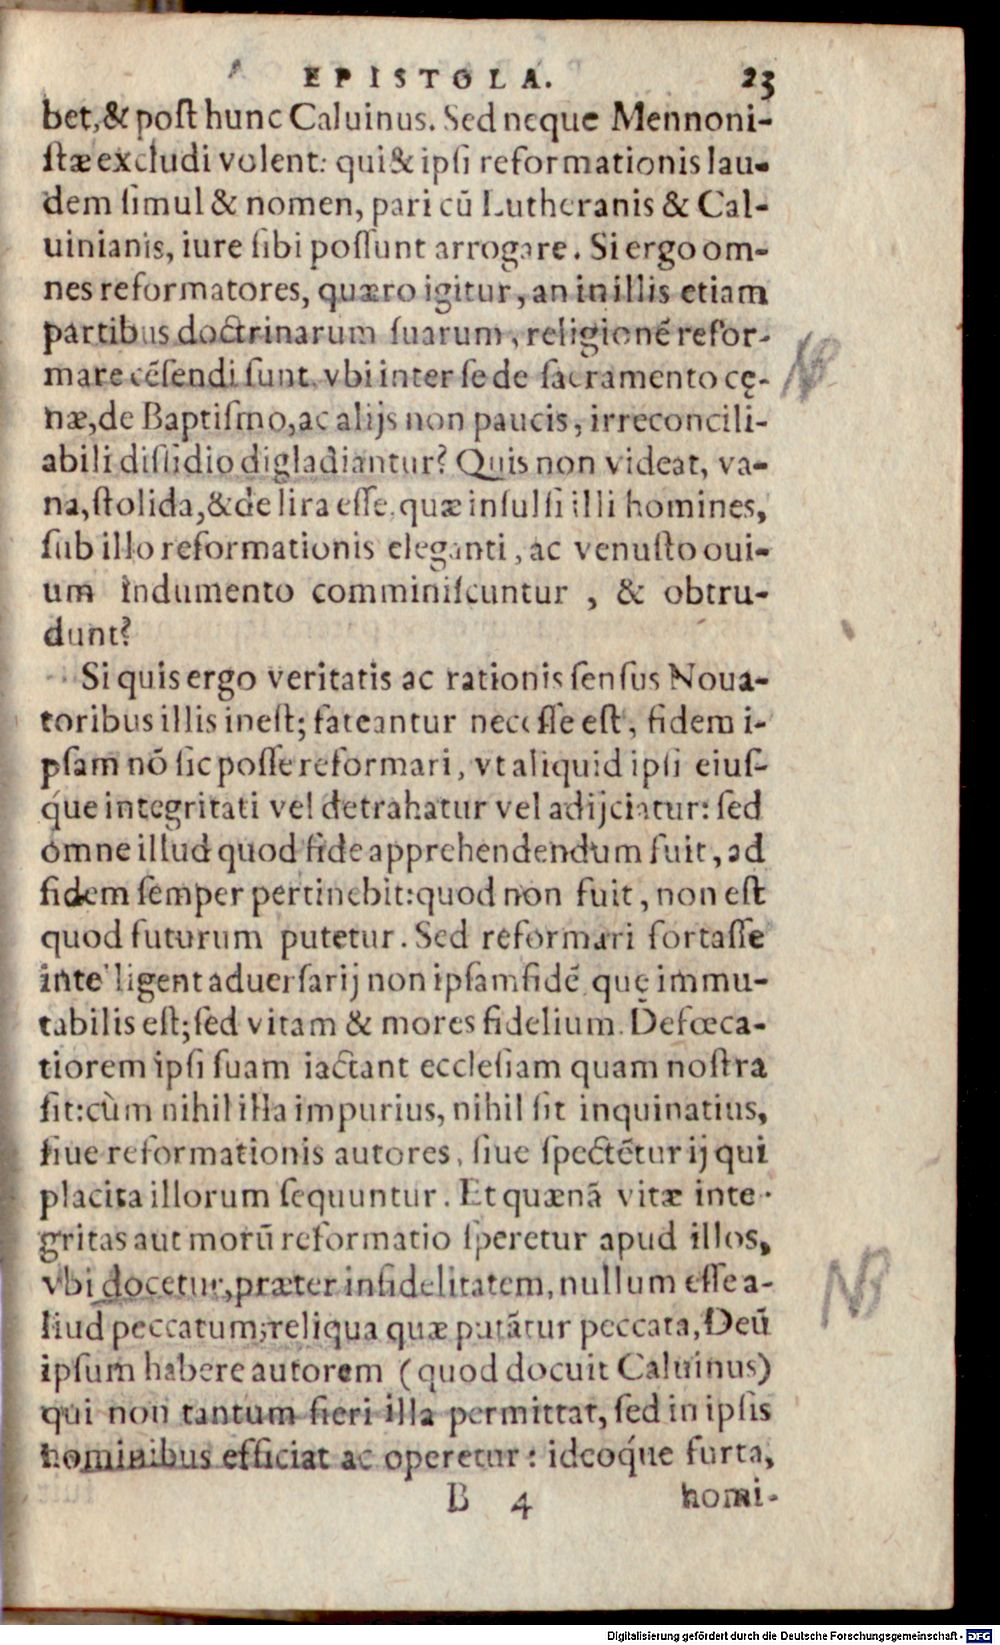 EPISTOLA. 23
bet, & post hunc Caluinus. Sed neque Mennoni-
stæ excludi volent: qui & ipsi reformationis lau-
dem simul & nomen, pari cū Lutheranis & Cal-
uinianis, iure sibi possunt arrogare. Si ergo om-
nes reformatores, quæro igitur, an in illis etiam
partibus doctrinarum suarum, religionē refor-
mare cēsendi sunt, vbi inter se de sacramento cę-
næ, de Baptismo, ac alijs non paucis, irreconcili-
abili dissidio digladiantur? Quis non videat, va-
na, stolida, & delira esse, quæ insulsi illi homines,
sub illo reformationis eleganti, ac venusto oui-
um indumento comminiscuntur, & obtru-
dunt?
Si quis ergo veritatis ac rationis sensus Noua-
toribus illis inest; fateantur necesse est, fidem i-
psam nō sic posse reformari, vt aliquid ipsi eius-
q́ue integritati vel detrahatur vel adijciatur: sed
omne illud quod fide apprehendendum fuit, ad
fidem semper pertinebit: quod non fuit, non est
quod futurum putetur. Sed reformari fortasse
intelligent aduersarij non ipsam fidē, quę immu-
tabilis est; sed vitam & mores fidelium. Defœca-
tiorem ipsi suam iactant ecclesiam quam nostra
sit: cùm nihil illa impurius, nihil sit inquinatius,
siue reformationis autores, siue spectētur ij qui
placita illorum sequuntur. Et quænā vitæ inte-
gritas aut morū reformatio speretur apud illos,
vbi docetur, præter infidelitatem, nullum esse a-
liud peccatum; reliqua quæ putātur peccata, Deū
ipsum habere autorem (quod docuit Caluinus)
qui non tantum fieri illa permittat, sed in ipsis
hominibus efficiat ac operetur: ideoq́ue furta,
B 4 homi-
NB
NB
Digitalisierung gefördert durch die Deutsche Forschungsgemeinschaft - DFG